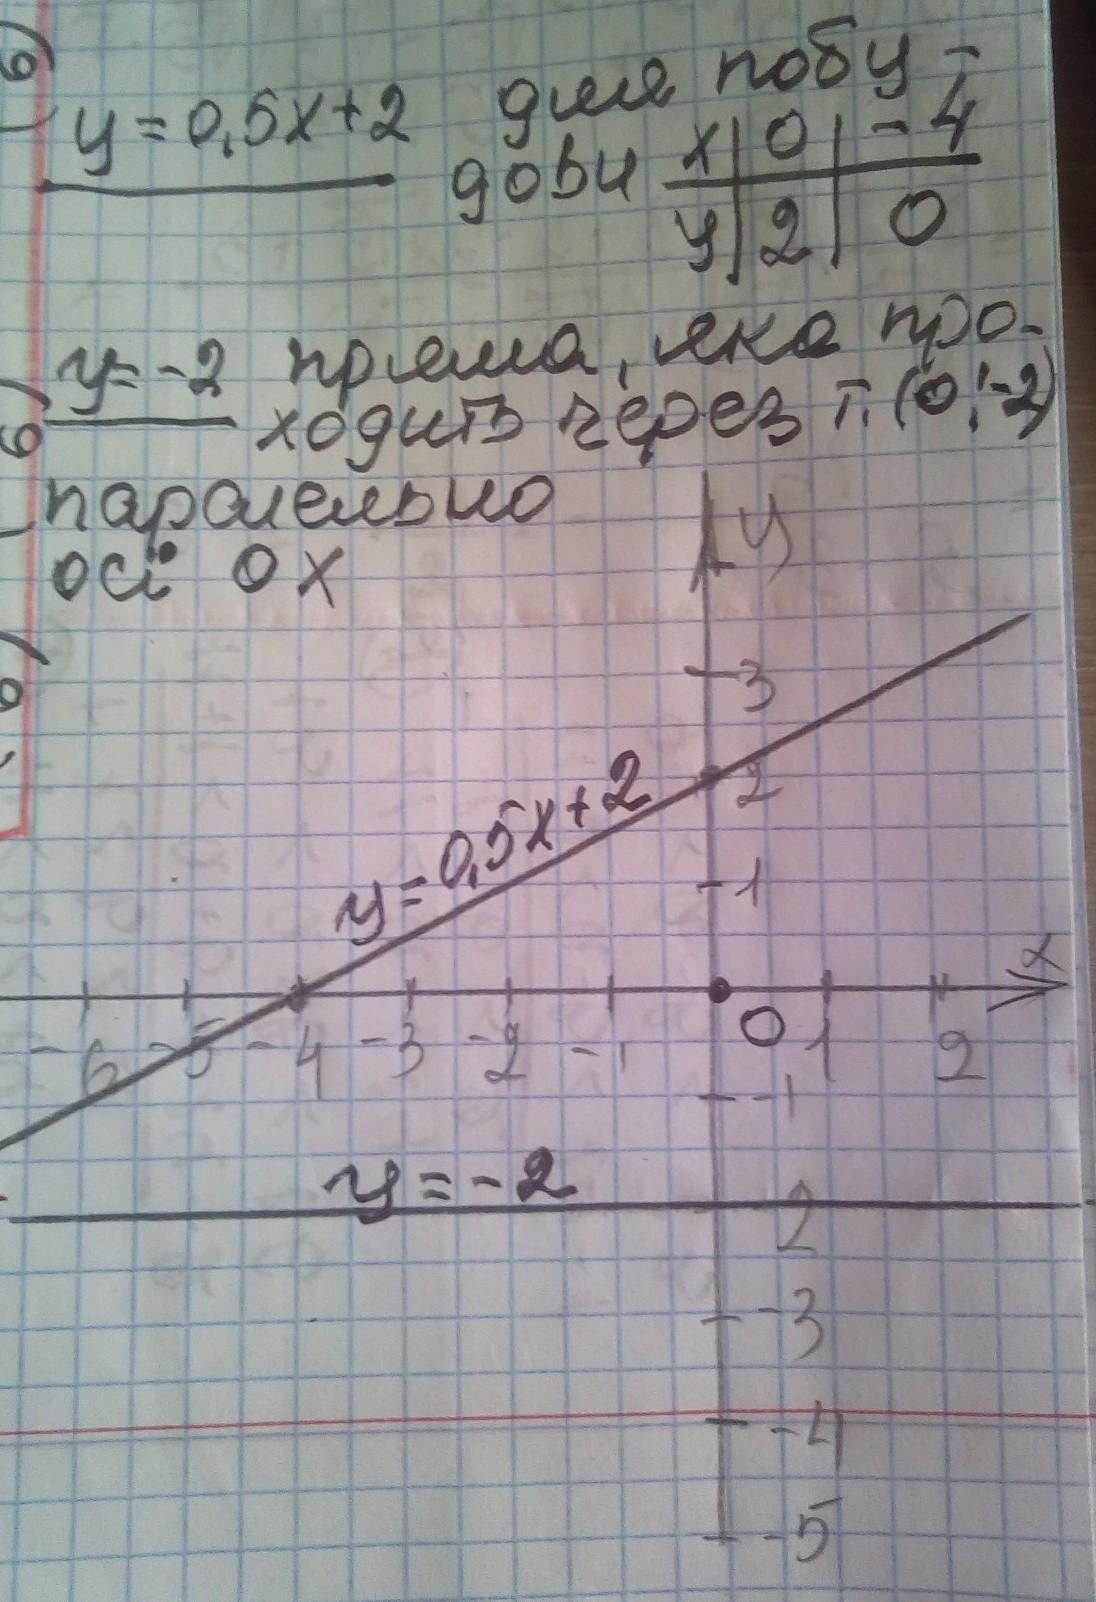 y = 0,5x+2 для побу-
дови x | 0 | -4
y | 2 | 0
y=-2 пряма, яка про-
ходить через т. (0;-2)
паралельно
осі OX
y
3
y=0,5x+2
2
1
x
-6 -5 -4 -3 -2 -1 0 1 2
-1
y=-2
2
-3
-4
-5